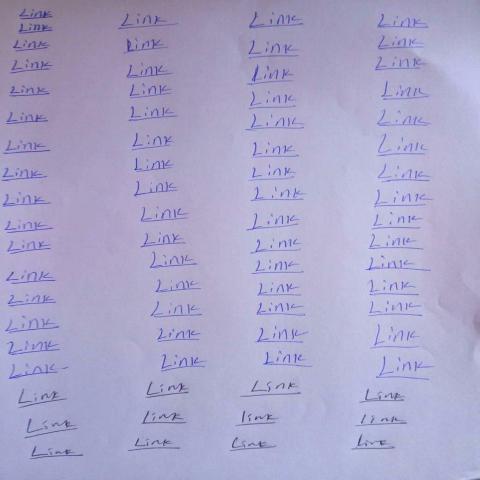 Link
Link Link Link Link
Link Link Link Link
Link Link Link Link
Link Link Link Link
Link Link Link Link
Link Link Link Link
Link Link Link Link
Link Link Link Link
Link Link Link Link
Link Link Link Link
Link Link Link Link
Link Link Link Link
Link Link Link Link
Link Link Link Link
Link Link Link Link
Link Link Link Link
Link Link link link
Link Link Link Link